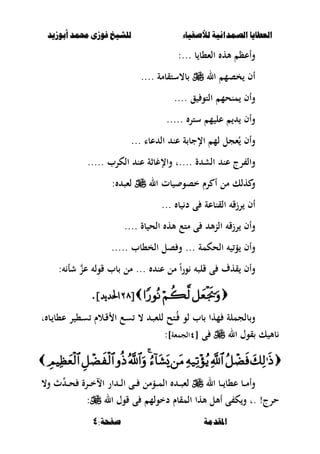 العطايا الصمدانية للأصفياء للشيخ فوزى محمد أبوزيد
وأعظم هذه العطايا ...:
أن يخصهم الله ﷻ بالاستقامة ....
وأن يمنحهم التوفيق ....
وأن يديم عليهم ستره .....
وأن يُعجل لهم الإجابة عند الدعاء ...
والفرج عند الشدة ....، والإغاثة عند الكرب .....
وكذلك من أكرم خصوصيات الله ﷻ لعبده:
أن يرزقه القناعة فى دنياه ...
وأن يرزقه الزهد فى متع هذه الحياة ....
وأن يؤتيه الحكمة ... وفصل الخطاب .....
وأن يقذف فى قلبه نوراً من عنده ... من باب قوله عزَّ شأنه:
﴿وَيَجْعَل لَّكُمْ نُورًا﴾ [٢٨الحديد].
وبالجملة فهذا باب لو فُتح للعبد لا تسع الأقلام تسطير عطاياه،
ناهيك بقول الله ﷻ فى [٤الجمعة]:
﴿ذَٰلِكَ فَضْلُ ٱللَّهِ يُؤْتِيهِ مَن يَشَآءُ ۚ وَٱللَّهُ ذُو ٱلْفَضْلِ ٱلْعَظِيمِ﴾
وأما عطايا الله ﷻ لعبده المؤمن فى الدار الآخرة فحدِّث ولا
حرج! .، ويكفى أهل هذا المقام دخولهم فى قول الله ﷻ:
المقدمة صفحة:٤